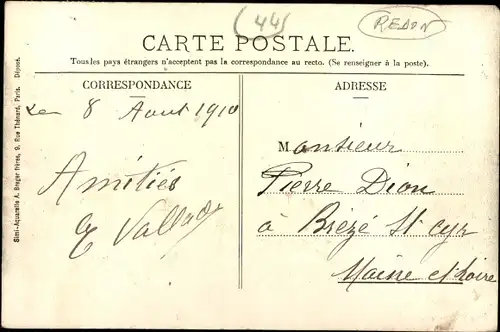 (44)
REDON
CARTE POSTALE.
Tous les pays étrangers n'acceptent pas la correspondance au recto. (Se renseigner à la poste).
CORRESPONDANCE
Le 8 Aout 1910
Amitiés
E Vallade
ADRESSE
Monsieur
Pierre Dion
à Brézé St cyr
Maine et Loire
Simi-Aquarelle A. Breger frères, 9, Rue Thénard, Paris. Déposé.